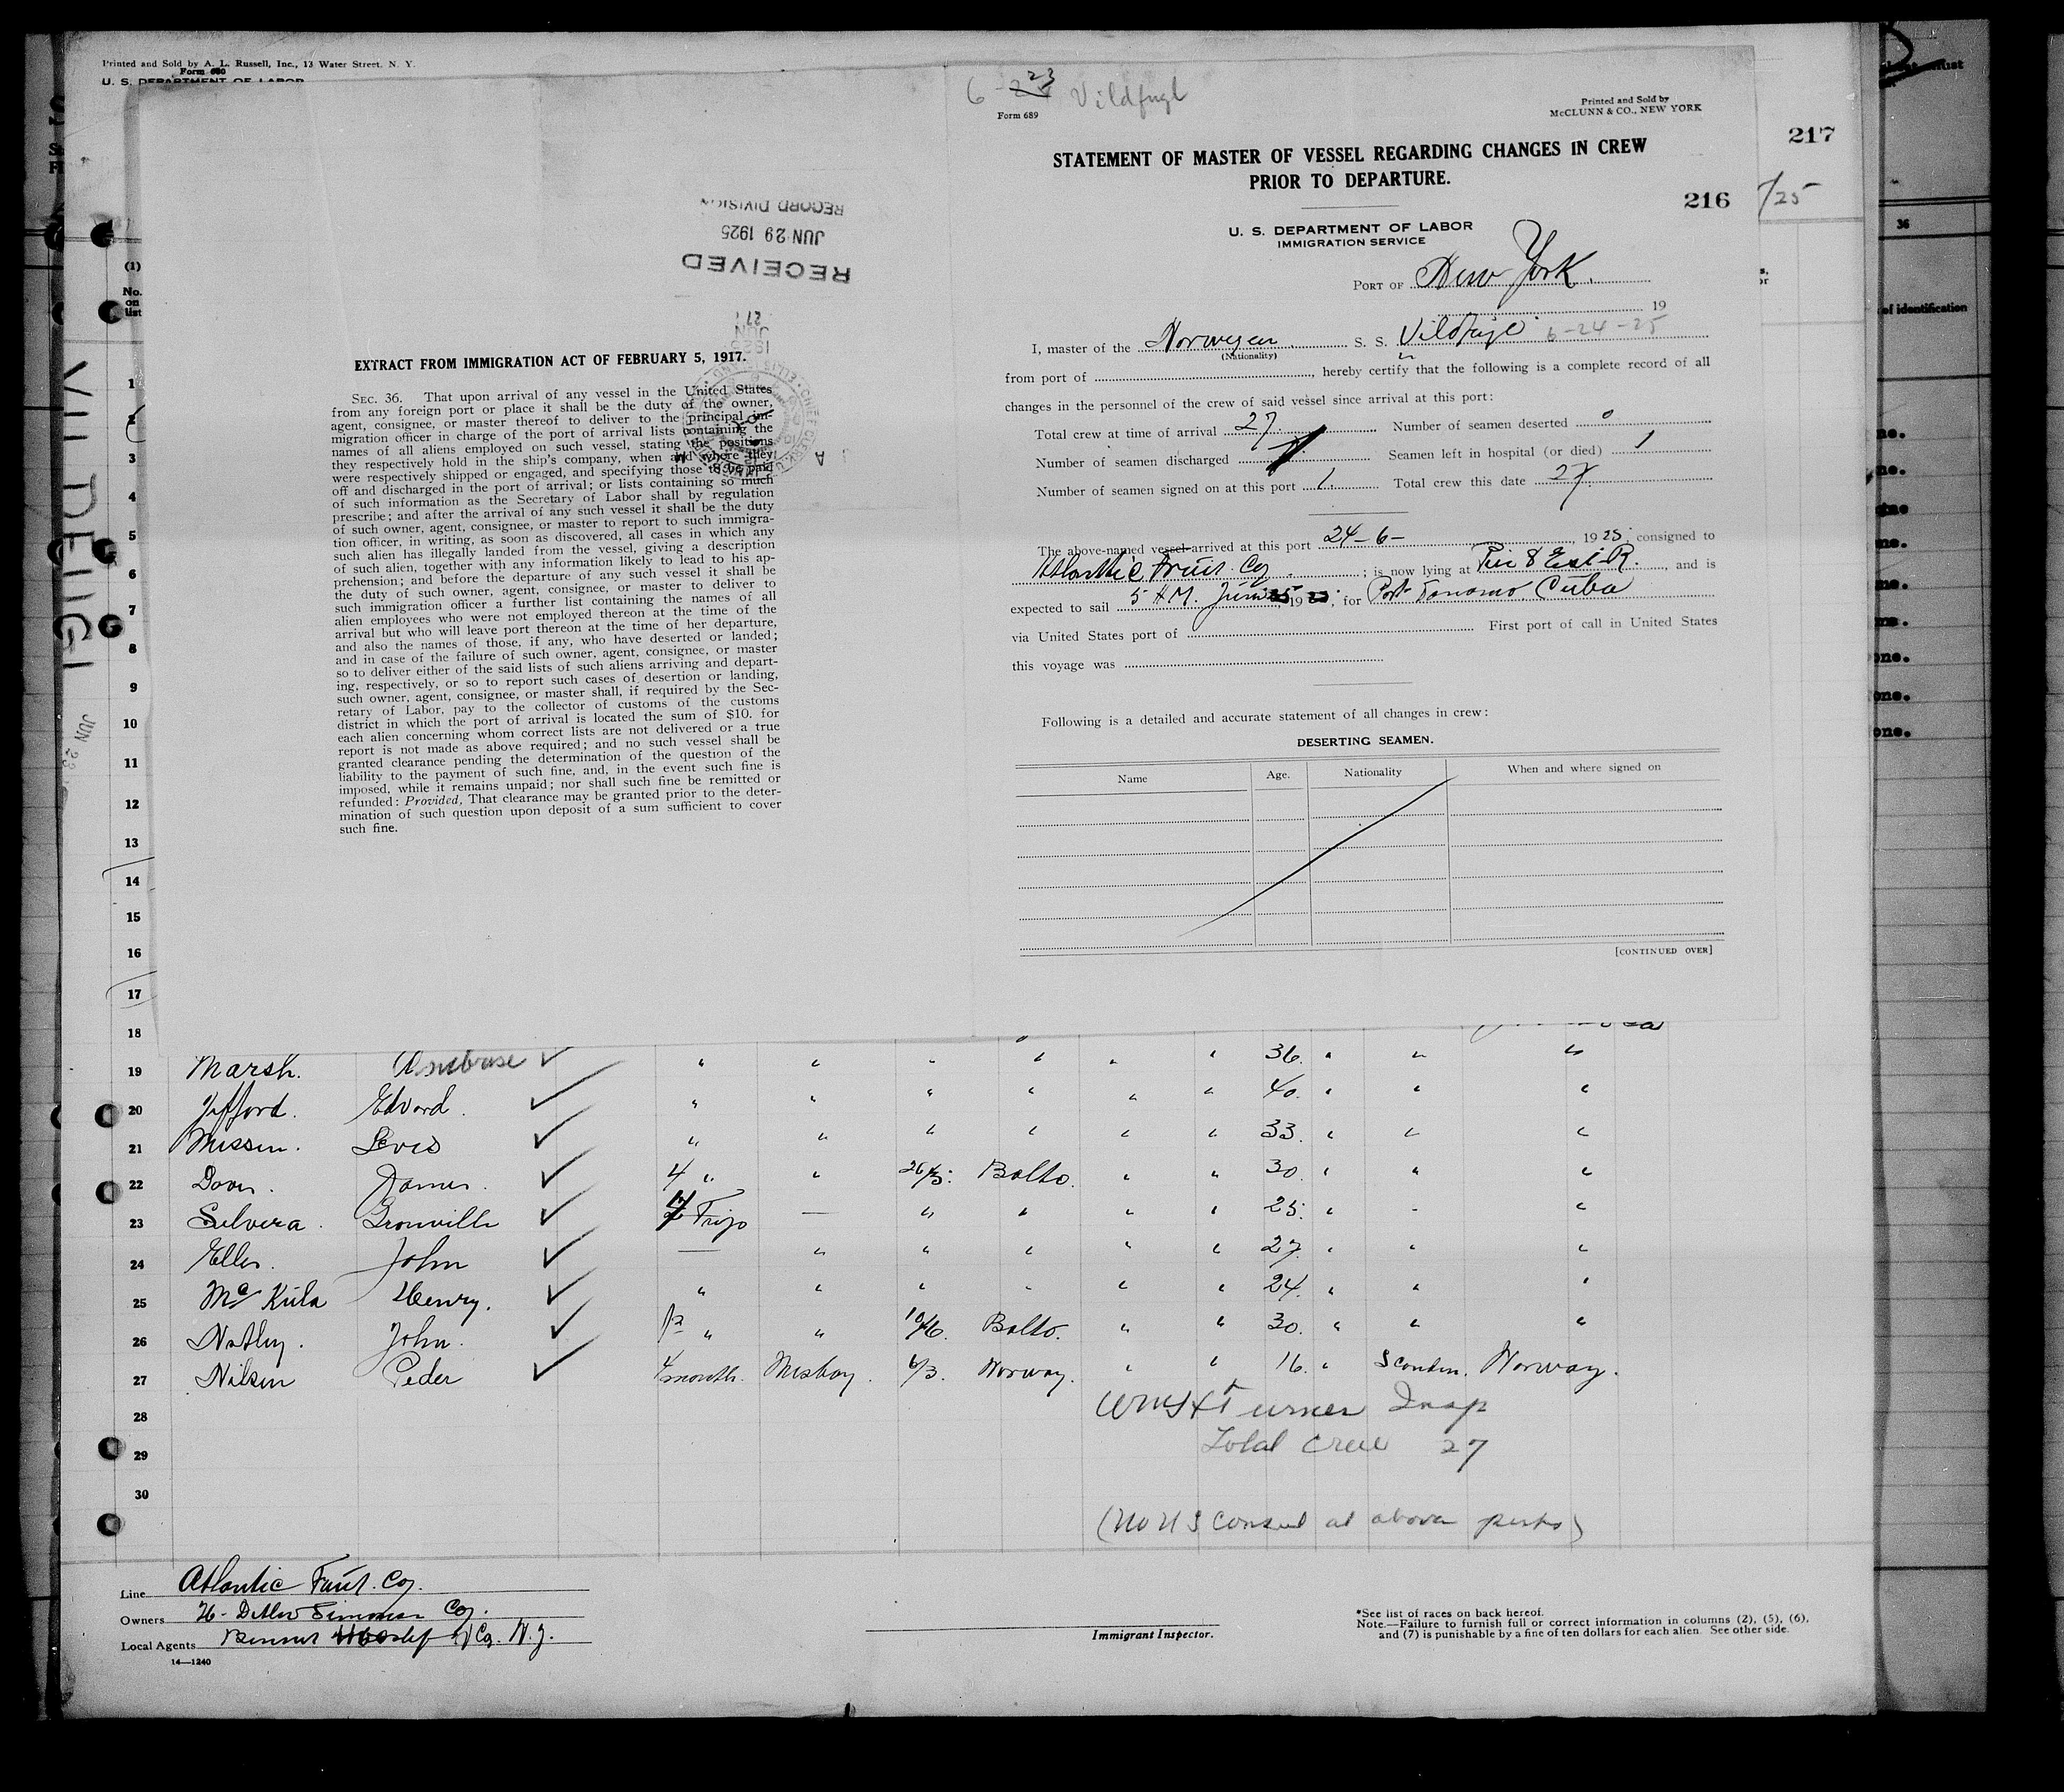 Printed and Sold by A. L. Russell, Inc., 13 Water Street, N. Y.
Form 680
U. S. DEPARTMENT OF LABOR
6-23 Vildfugl
Form 689
Printed and Sold by
McCLUNN & CO., NEW YORK
STATEMENT OF MASTER OF VESSEL REGARDING CHANGES IN CREW
PRIOR TO DEPARTURE.
217
216
/25
U. S. DEPARTMENT OF LABOR
IMMIGRATION SERVICE
PORT OF New York.
19
I, master of the Norwegian S. S. Vildfugl 6-24-25
(Nationality)
from port of , hereby certify that the following is a complete record of all
changes in the personnel of the crew of said vessel since arrival at this port:
Total crew at time of arrival 27. Number of seamen deserted 0
Number of seamen discharged Seamen left in hospital (or died) 1
Number of seamen signed on at this port 1. Total crew this date 27.
The above-named vessel arrived at this port 24-6- , 1925; consigned to
Atlantic Fruit Coy. ; is now lying at Pier 8 East R. , and is
expected to sail 5 A.M. June 25 19 25, for Port Tanamo, Cuba
via United States port of First port of call in United States
this voyage was
Following is a detailed and accurate statement of all changes in crew:
DESERTING SEAMEN.
Name Age. Nationality When and where signed on
[CONTINUED OVER]
RECEIVED
JUN 29 1925
RECORD DIVISION
EXTRACT FROM IMMIGRATION ACT OF FEBRUARY 5, 1917.
SEC. 36. That upon arrival of any vessel in the United States
from any foreign port or place it shall be the duty of the owner,
agent, consignee, or master thereof to deliver to the principal im-
migration officer in charge of the port of arrival lists containing the
names of all aliens employed on such vessel, stating the positions
they respectively hold in the ship's company, when and where they
were respectively shipped or engaged, and specifying those to be paid
off and discharged in the port of arrival; or lists containing so much
of such information as the Secretary of Labor shall by regulation
prescribe; and after the arrival of any such vessel it shall be the duty
of such owner, agent, consignee, or master to report to such immigra-
tion officer, in writing, as soon as discovered, all cases in which any
such alien has illegally landed from the vessel, giving a description
of such alien, together with any information likely to lead to his ap-
prehension; and before the departure of any such vessel it shall be
the duty of such owner, agent, consignee, or master to deliver to
such immigration officer a further list containing the names of all
alien employees who were not employed thereon at the time of the
arrival but who will leave port thereon at the time of her departure,
and also the names of those, if any, who have deserted or landed;
and in case of the failure of such owner, agent, consignee, or master
so to deliver either of the said lists of such aliens arriving and depart-
ing, respectively, or so to report such cases of desertion or landing,
such owner, agent, consignee, or master shall, if required by the Sec-
retary of Labor, pay to the collector of customs of the customs
district in which the port of arrival is located the sum of $10. for
each alien concerning whom correct lists are not delivered or a true
report is not made as above required; and no such vessel shall be
granted clearance pending the determination of the question of the
liability to the payment of such fine, and, in the event such fine is
imposed, while it remains unpaid; nor shall such fine be remitted or
refunded: Provided, That clearance may be granted prior to the deter-
mination of such question upon deposit of a sum sufficient to cover
such fine.
VILDFUGL
JUN 23
(1)
No.
on
list
1
2
3
4
5
6
7
8
9
10
11
12
13
14
15
16
17
18
19 Marsh. Ambrose " " " " " " 36. " " "
20 Jefford. Edvard. " " " " " " 40. " " "
21 Missen. Levis " " " " " " 33. " " "
22 James. 4 " " 26/5. Balto. " " 30. " " "
23 Silvera. Granville Frijo — " " " " 25. " - "
24 Elles. John — " " " " " 27. " " "
25 Henry. " " " - " " 24. " " "
26 John. " " 10/6. Balto. " " 30. " " "
27 Nilsen Peder 4 month. Messboy. 6/3. Norway. " " 16. " Scandin. Norway.
28
29
30
Turner Insp
Total Crew 27
(No U S Consul at above ports)
Line Atlantic Fruit. Coy.
Owners Coy.
Local Agents N. Y.
14—1240
Immigrant Inspector.
*See list of races on back hereof.
Note.—Failure to furnish full or correct information in columns (2), (5), (6),
and (7) is punishable by a fine of ten dollars for each alien. See other side.
36
of identification